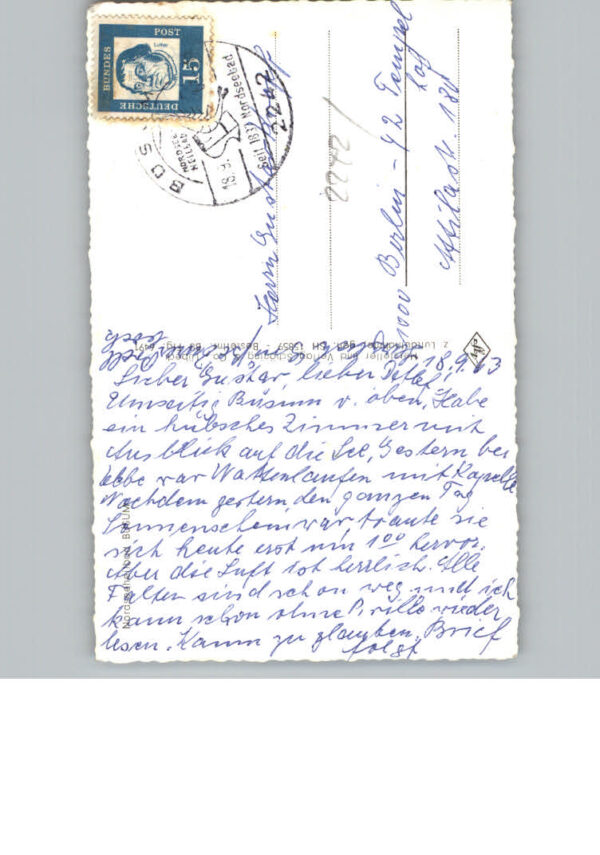 DEUTSCHE
BUNDES
POST
15
Luther
BÜSUM
NORDSEE
HEILBAD
seit 1837 Nordseebad
18.9.
2242
Herrn Gustav
2242
1000 Berlin-42 Tempel
hof
Attilastr. 180
Hersteller und Verlag Schöning & Co Lübeck
z Luftbildaufn. freigeg. - Bestellnr. Bü
18.9.63
Lieber Gustav, lieber Detlef!
Umseitig Büsum v. oben. Habe
ein hübsches Zimmer mit
Ausblick auf die See. Gestern bei
Ebbe war Wattenlaufen mit Kapelle
Nachdem gestern den ganzen Tag
Sonnenschein war traute sie
sich heute erst um 1 00 hervor.
Aber die Luft ist herrlich. Alle
Falten sind schon weg und ich
kann schon ohne Brille wieder
lesen. Kaum zu glauben. Brief
folgt
Nordseeheilbad BÜSUM